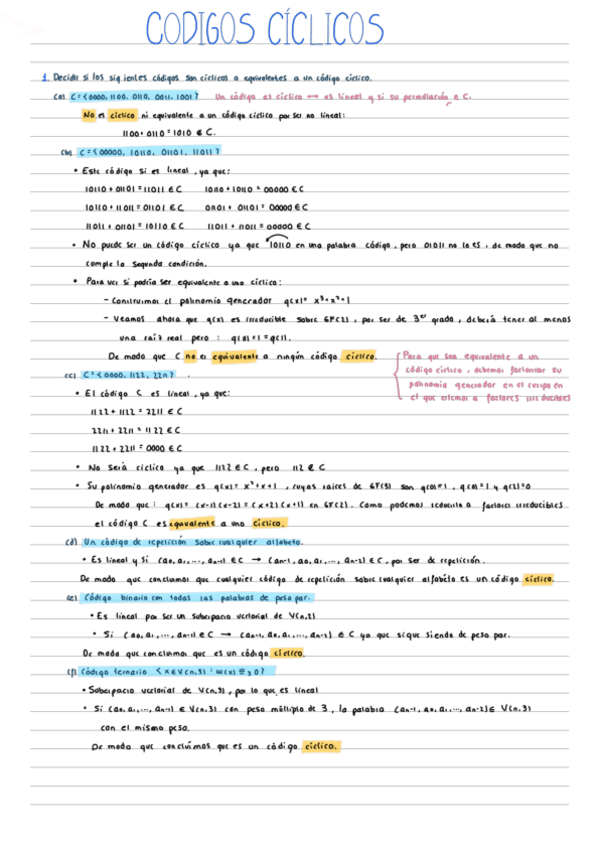 CODIGOS CÍCLICOS
1. Decidir si los siguientes códigos son cíclicos o equivalentes a un código cíclico.
(a) C = {0000, 1100, 0110, 0011, 1001} Un código es cíclico ⟺ es lineal y si su permutación ∈ C.
No es cíclico ni equivalente a un código cíclico por ser no lineal:
1100 + 0110 = 1010 ∉ C.
(b) C = {00000, 10110, 01101, 11011}
• Este código si es lineal, ya que:
10110 + 01101 = 11011 ∈ C 10110 + 10110 = 00000 ∈ C
10110 + 11011 = 01101 ∈ C 01101 + 01101 = 00000 ∈ C
11011 + 01101 = 10110 ∈ C 11011 + 11011 = 00000 ∈ C
• No puede ser un código cíclico ya que 10110 en una palabra código, pero 01011 no lo es, de modo que no
cumple la segunda condición.
• Para ver si podría ser equivalente a uno cíclico:
- Construimos el polinomio generador g(x) = x³+x²+1
- Veamos ahora que g(x) es irreducible sobre GF(2), por ser de 3er grado, deberá tener al menos
una raíz real pero: g(0) = 1 = g(1).
De modo que C no es equivalente a ningún código cíclico.
Para que sea equivalente a un
código cíclico, debemos factorizar su
polinomio generador en el cuerpo en
el que estemos a factores irreducibles
(c) C = {0000, 1122, 2211}
• El código C es lineal, ya que:
1122 + 1122 = 2211 ∈ C
2211 + 2211 = 1122 ∈ C
1122 + 2211 = 0000 ∈ C
• No será cíclico ya que 1122 ∈ C, pero 112 ∉ C
• Su polinomio generador es g(x) = x³+x+1, cuyas raíces de GF(3) son g(0)=1, g(1)=1 y g(2)=0
De modo que: g(x) = (x-1)(x-2) = (x+2)(x+1) en GF(2). Como podemos reducirlo a factores irreducibles
el código C es equivalente a uno cíclico.
(d) Un código de repetición sobre cualquier alfabeto.
• Es lineal y si (a0, a1, ..., an-1) ∈ C → (an-1, a0, a1, ..., an-2) ∈ C, por ser de repetición.
De modo que concluimos que cualquier código de repetición sobre cualquier alfabeto es un código cíclico.
(e) Código binario con todas las palabras de peso par.
• Es lineal por ser un subespacio vectorial de V(n,2)
• Si (a0, a1, ..., an-1) ∈ C → (an-1, a0, a1, ..., an-2) ∈ C ya que sigue siendo de peso par.
De modo que concluimos que es un código cíclico.
(f) Código ternario {x ∈ V(n,3) : w(x) ≡3 0}
• Subespacio vectorial de V(n,3), por lo que es lineal
• Si (a0, a1, ..., an-1) ∈ V(n,3) con peso múltiplo de 3, la palabra (an-1, a0, a1, ..., an-2) ∈ V(n,3)
con el mismo peso.
De modo que concluimos que es un código cíclico.